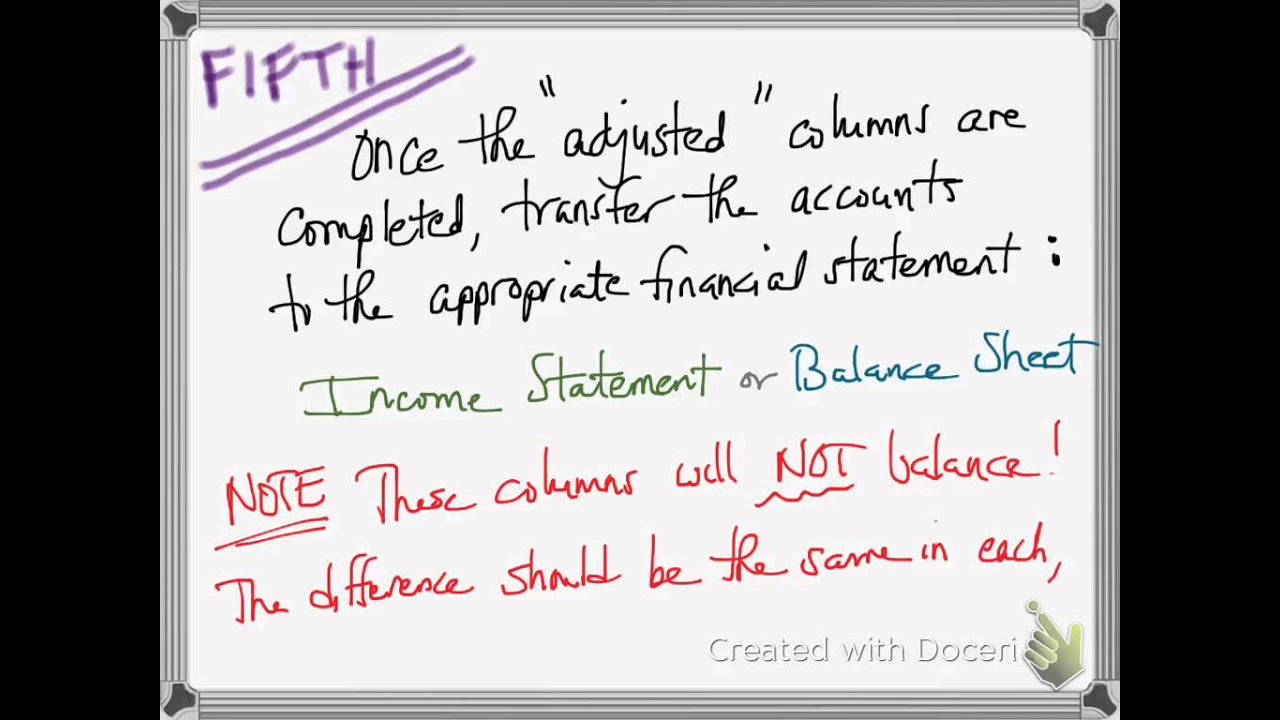 FIFTH
Once the "adjusted" columns are
completed, transfer the accounts
to the appropriate financial statement:
Income Statement or Balance Sheet
NOTE These columns will NOT balance!
The difference should be the same in each,
Created with Doceri